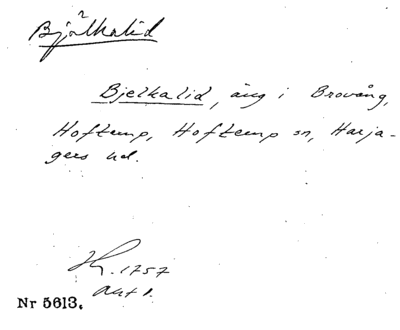 Bjälkalid
Bjelkalid, äng i Brovång,
Hofterup, Hofterup sn, Harja-
gers hd.
1757
Akt 1.
Nr 5613.